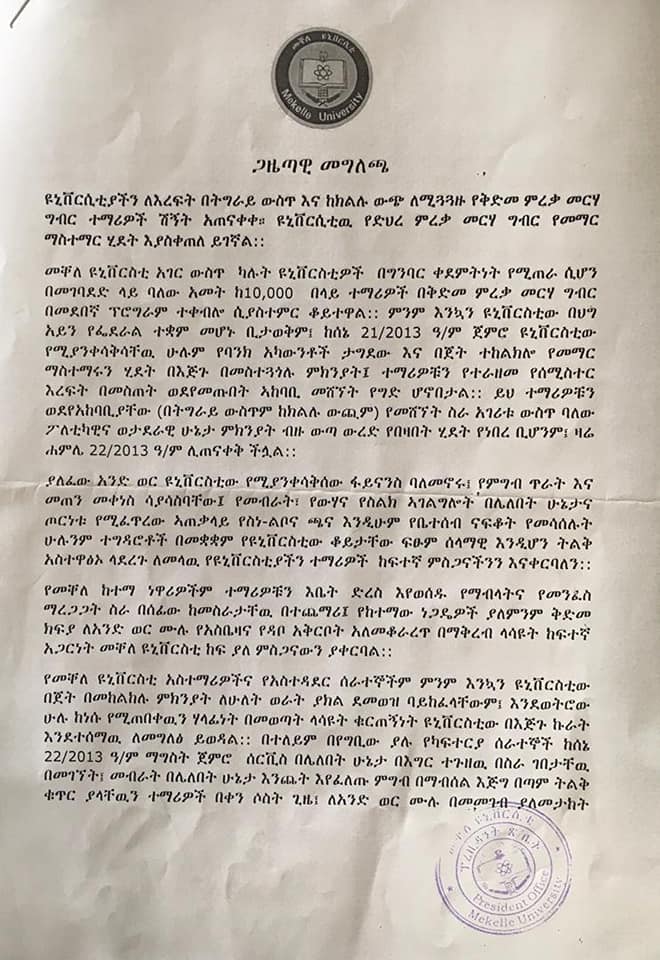 መቐለ ዩኒቨርሲቲ
Mekelle University
ጋዜጣዊ መግለጫ
ዩኒቨርሲቲያችን ለእረፍት በትግራይ ውስጥ እና ከክልሉ ውጭ ለሚጓጓዙ የቅድመ ምረቃ መርሃ
ግብር ተማሪዎች ሽኝት አጠናቀቀ። ዩኒቨርሲቲዉ የድህረ ምረቃ መርሃ ግብር የመማር
ማስተማር ሂደት እያስቀጠለ ይገኛል::
መቐለ ዩኒቨርስቲ አገር ውስጥ ካሉት ዩኒቨርስቲዎች በግንባር ቀደምትነት የሚጠራ ሲሆን
በመገባደድ ላይ ባለው አመት ከ10,000 በላይ ተማሪዎች በቅድመ ምረቃ መርሃ ግብር
በመደበኛ ፕሮግራም ተቀብሎ ሲያስተምር ቆይተዋል:: ምንም እንኳን ዩኒቨርስቲው በህግ
አይን የፌደራል ተቋም መሆኑ ቢታወቅም፤ ከሰኔ 21/2013 ዓ/ም ጀምሮ ዩኒቨርስቲው
የሚያንቀሳቅሳቸዉ ሁሉም የባንክ አካውንቶች ታግደው እና በጀት ተከልክሎ የመማር
ማስተማሩን ሂደት በእጅጉ በመስተጓጎሉ ምክንያት፤ ተማሪዎቹን የተራዘመ የሰሚስተር
እረፍት በመስጠት ወደየመጡበት ኣከባቢ መሸኘት የግድ ሆኖበታል:: ይህ ተማሪዎቹን
ወደየአከባቢያቸው (በትግራይ ውስጥም ከክልሉ ውጪም) የመሸኘት ስራ አገሪቱ ውስጥ ባለው
ፖለቲካዊና ወታደራዊ ሁኔታ ምክንያት ብዙ ውጣ ውረድ የበዛበት ሂደት የነበረ ቢሆንም፤ ዛሬ
ሐምሌ 22/2013 ዓ/ም ሊጠናቀቅ ችሏል::
ያለፈው አንድ ወር ዩኒቨርስቲው የሚያንቀሳቅሰው ፋይናንስ ባለመኖሩ፤ የምግብ ጥራት እና
መጠን መቀነስ ሳያሳስባቸው፤ የመብራት፣ የውሃና የስልክ ኣገልግሎት በሌለበት ሁኔታና
ጦርነቱ የሚፈጥረው ኣጠቃላይ የስነ-ልቦና ጫና እንዲሁም የቤተሰብ ናፍቆት የመሳሰሉት
ሁሉንም ተግዳሮቶች በመቋቋም የዩኒቨርስቲው ቆይታቸው ፍፁም ሰላማዊ እንዲሆን ትልቅ
አስተዋፅኦ ላደረጉ ለመላዉ የዩኒቨርስቲያችን ተማሪዎች ከፍተኛ ምስጋናችንን እናቀርባለን::
የመቐለ ከተማ ነዋሪዎችም ተማሪዎቹን እቤት ድረስ እየወሰዱ የማብላትና የመንፈስ
ማረጋጋት ስራ በሰፊው ከመስራታቸዉ በተጨማሪ፤ የከተማው ነጋዴዎች ያለምንም ቅድመ
ክፍያ ለአንድ ወር ሙሉ የአስቤዛና የዳቦ አቅርቦት አለመቆራረጥ በማቅረብ ላሳዩት ከፍተኛ
አጋርነት መቐለ ዩኒቨርስቲ ከፍ ያለ ምስጋናውን ያቀርባል::
የመቐለ ዩኒቨርስቲ አስተማሪዎችና የአስተዳደር ሰራተኞችም ምንም እንኳን ዩኒቨርስቲው
በጀት በመከልከሉ ምክንያት ለሁለት ወራት ያክል ደመወዝ ባይከፈላቸውም፤ እንደወትሮው
ሁሉ ከነሱ የሚጠበቀዉን ሃላፊነት በመወጣት ላሳዩት ቁርጠኝነት ዩኒቨርስቲው በእጅጉ ኩራት
እንደተሰማዉ ለመግለፅ ይወዳል:: በተለይም በየግቢው ያሉ የካፍተርያ ሰራተኞች ከሰኔ
22/2013 ዓ/ም ማግስት ጀምሮ ሰርቪስ በሌለበት ሁኔታ በእግር ተጉዘዉ በስራ ገበታቸዉ
በመገኘት፤ መብራት በሌለበት ሁኔታ እንጨት እየፈለጡ ምግብ በማብሰል እጅግ በጣም ትልቅ
ቁጥር ያላቸዉን ተማሪዎች በቀን ሶስት ጊዜ፤ ለአንድ ወር ሙሉ በመመገብ ያለመታከት
መቐለ ዩኒቨርሲቲ
ፕረዚዳንት ጽ/ቤት
President Office
Mekelle University